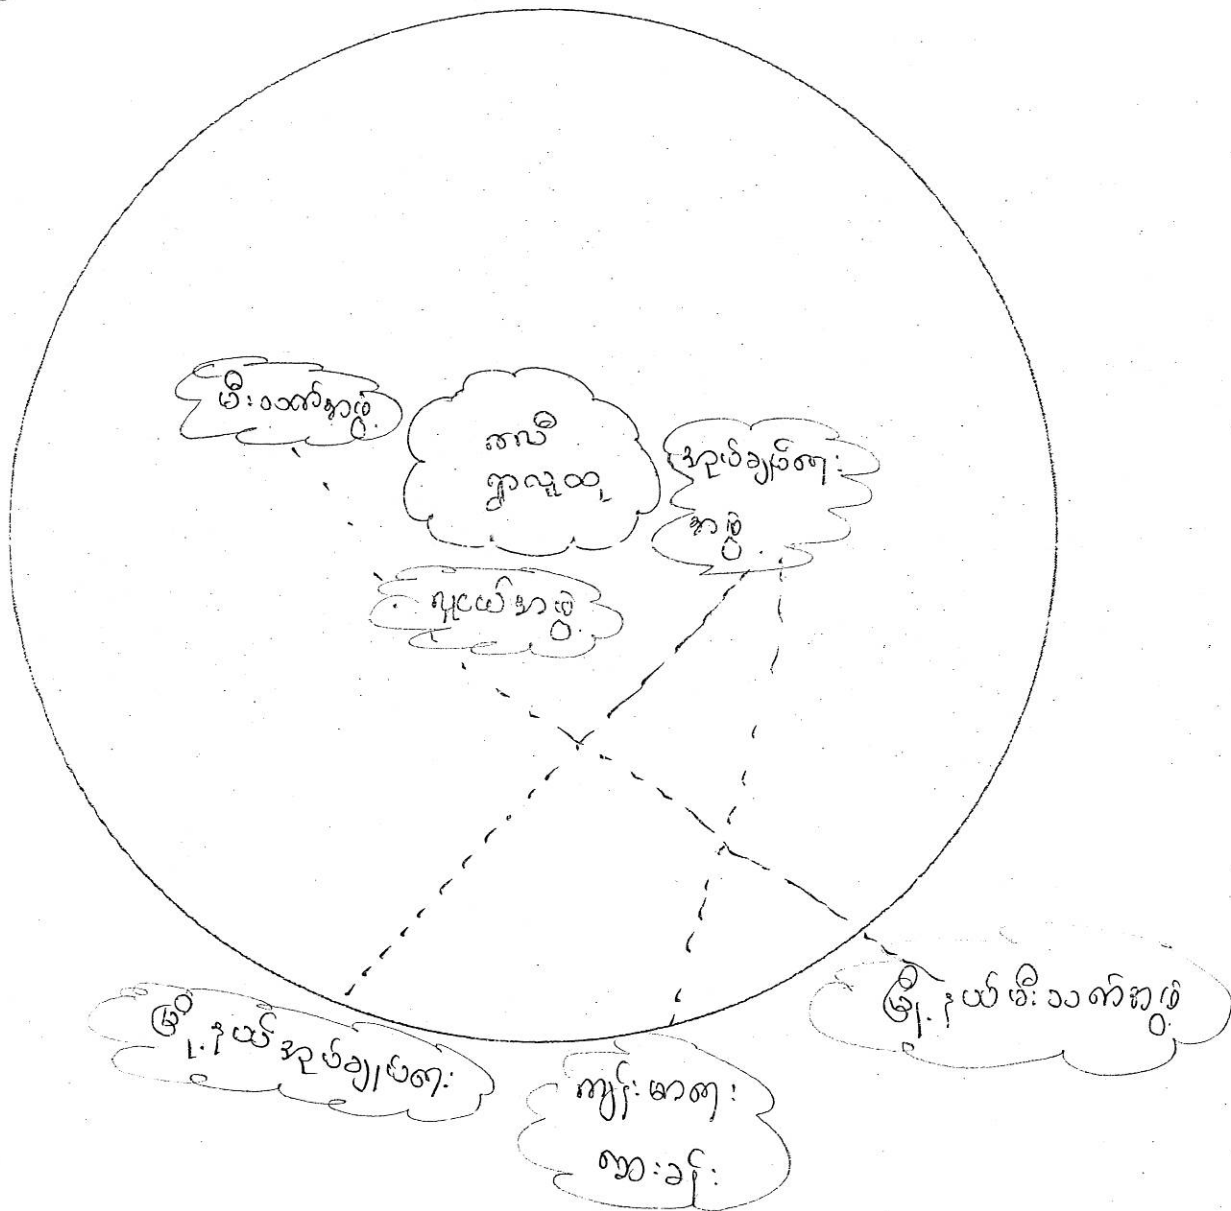 မီးသတ်အဖွဲ့
ကလီ
ရွာလူထု
အုပ်ချုပ်ရေး
အဖွဲ့
လူငယ်အဖွဲ့
မြို့နယ်အုပ်ချုပ်ရေး
ကျန်းမာရေး
ဆေးခန်း
မြို့နယ်မီးသတ်အဖွဲ့